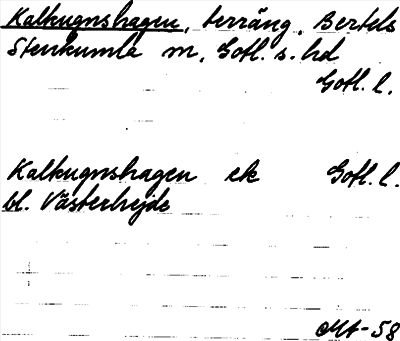 Kalkugnshagen, terräng, Bertels
Stenkumla m, Gotl. s. hd
Gotl. l.
Kalkugnshagen ek Gotl. l.
bl. Västerhejde
MA-58